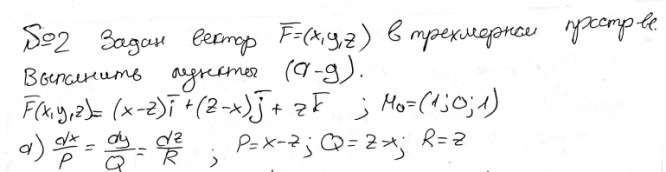 №2 Задан вектор F̅=(x,y,z) в трехмерном простр-ве.
Выполнить пункты (a-g).
F̅(x,y,z)=(x-z)i̅+(z-x)j̅+zk̅ ; M₀=(1;0;1)
a) dx/P = dy/Q = dz/R ; P=x-z; Q=z-x; R=z